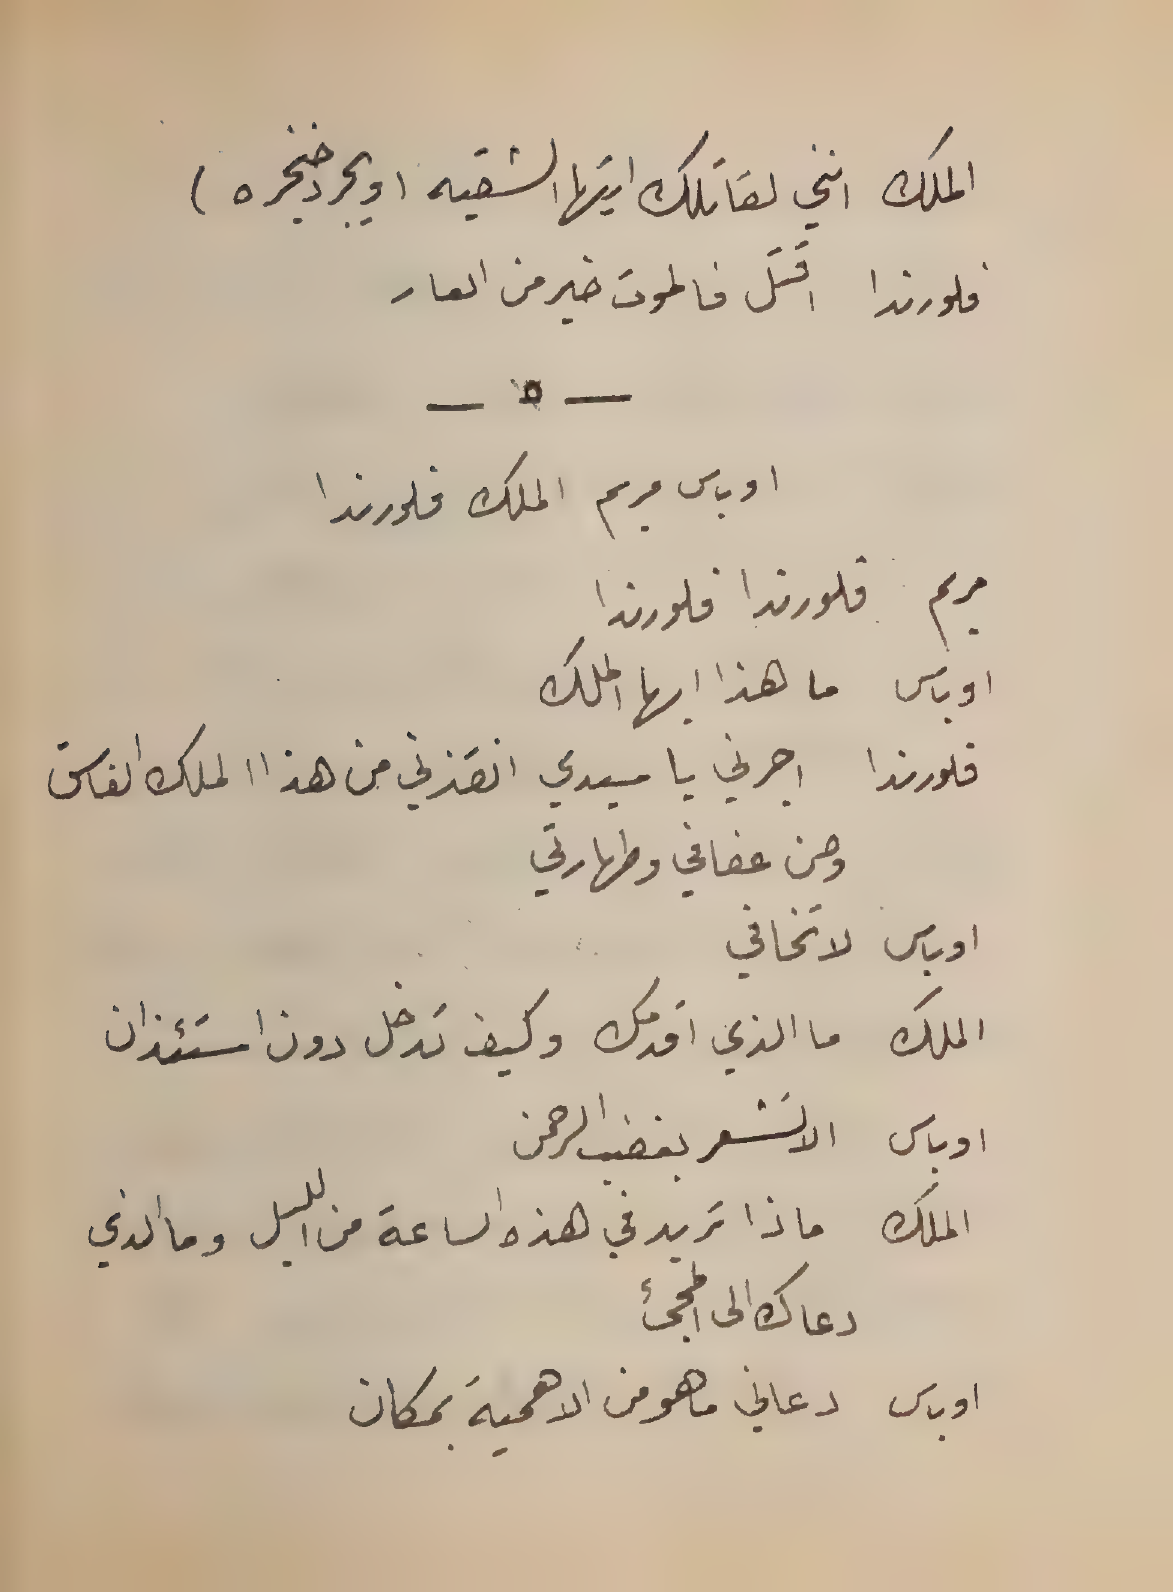 الملك انني لقاتلك ايتها الشقيه (ويجرد خنجره)
فلورندا اقتل فالموت خير من العار
— ٥ —
اوباس مريم الملك فلورندا
مريم فلورندا فلورندا
اوباس ما هذا ايها الملك
فلورندا اجرني يا سيدي انقذني من هذا الملك الفاسق
وصن عفافي وطهارتي
اوباس لا تخافي
الملك ما الذي اقدمك وكيف تدخل دون استئذان
اوباس الا تشعر بغضب الرحمن
الملك ماذا تريد في هذه الساعة من الليل وما الذي
دعاك الى المجئ
اوباس دعاني ما هو من الاهمية بمكان